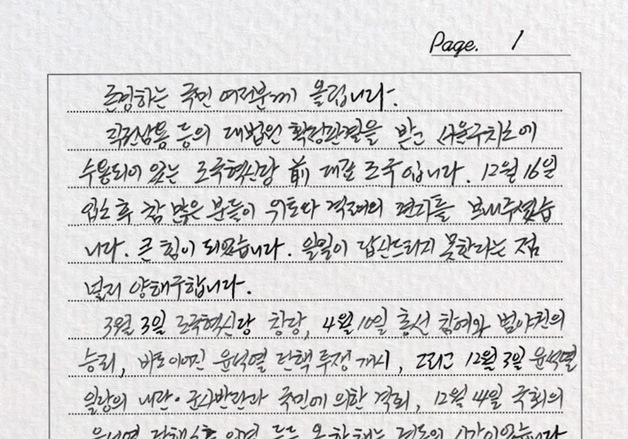 Page. 1
존경하는 국민 여러분께 올립니다.
직권남용 등의 대법원 확정판결을 받고 서울구치소에
수용되어 있는 조국혁신당 前 대표 조국입니다. 12월 16일
입소 후 참 많은 분들이 위로와 격려의 편지를 보내주셨습
니다. 큰 힘이 되었습니다. 일일이 답신드리지 못한다는 점
널리 양해구합니다.
3월 3일 조국혁신당 창당, 4월 10일 총선 참여와 범야권의
승리, 바로 이어진 윤석열 탄핵 투쟁 개시, 그리고 12월 3일 윤석열
일당의 내란·군사반란과 국민에 의한 격퇴, 12월 4일 국회의
윤석열 탄핵소추